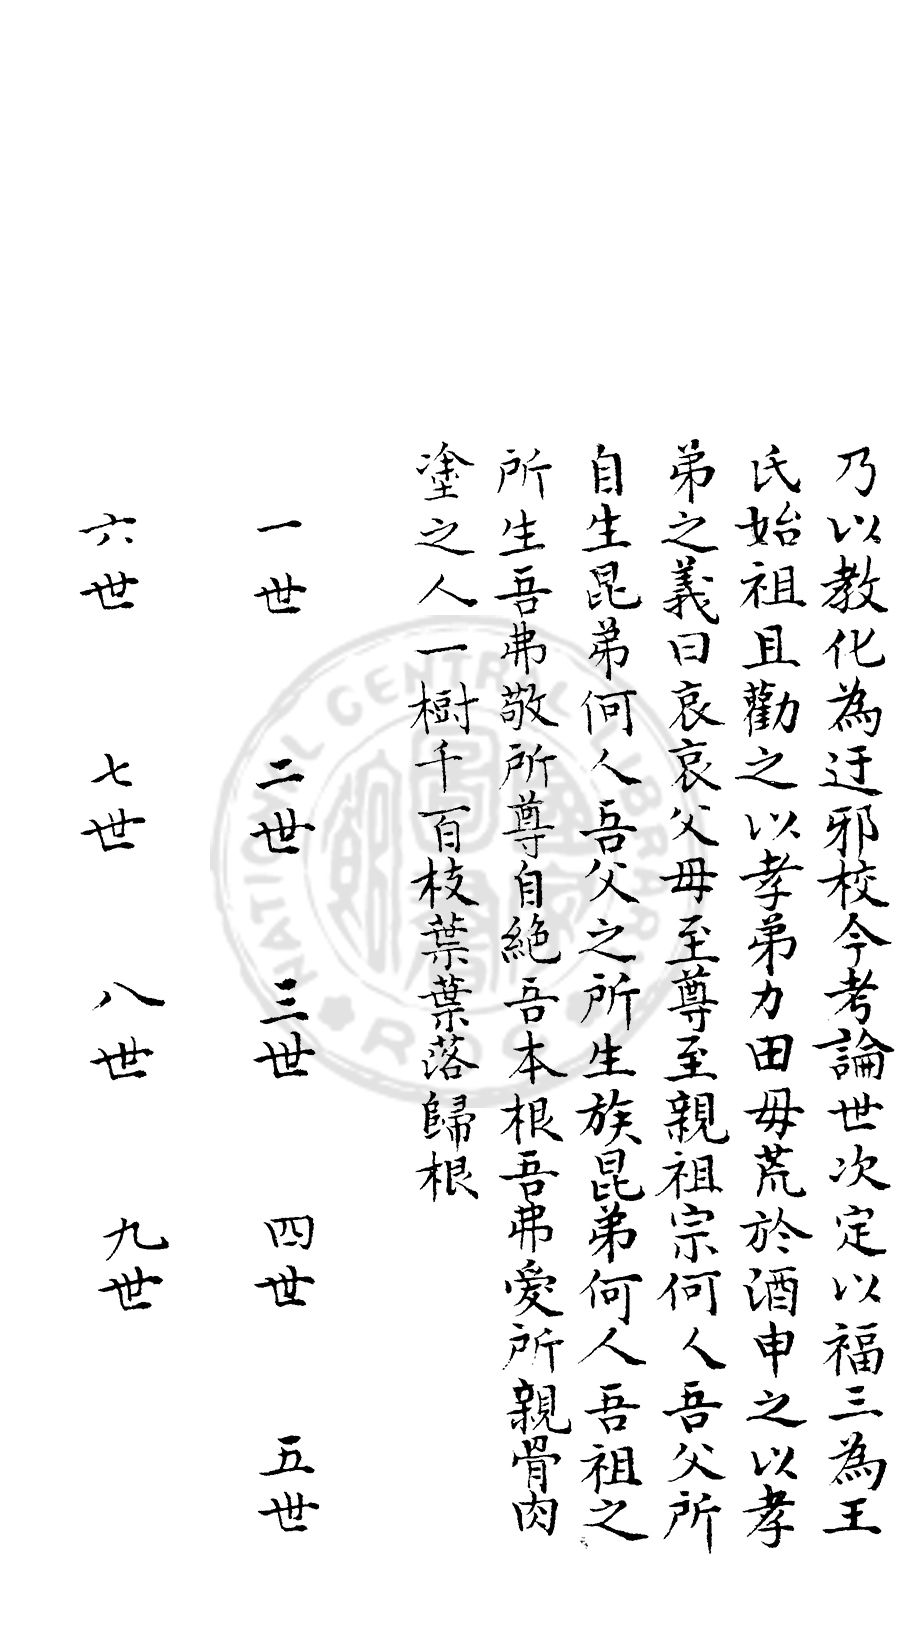 乃以教化為迂邪校今考論世次定以福三為王
氏始祖且勸之以孝弟力田毋荒於酒申之以孝
弟之義曰哀哀父毋至尊至親祖宗何人吾父所
自生昆弟何人吾父之所生族昆弟何人吾祖之
所生吾弗敬所尊自絶吾本根吾弗愛所親骨肉
塗之人一樹千百枝葉葉落歸根
一世 二世 三世 四世 五世
六世 七世 八世 九世
NATIONAL CENTRAL LIBRARY
R.O.C.